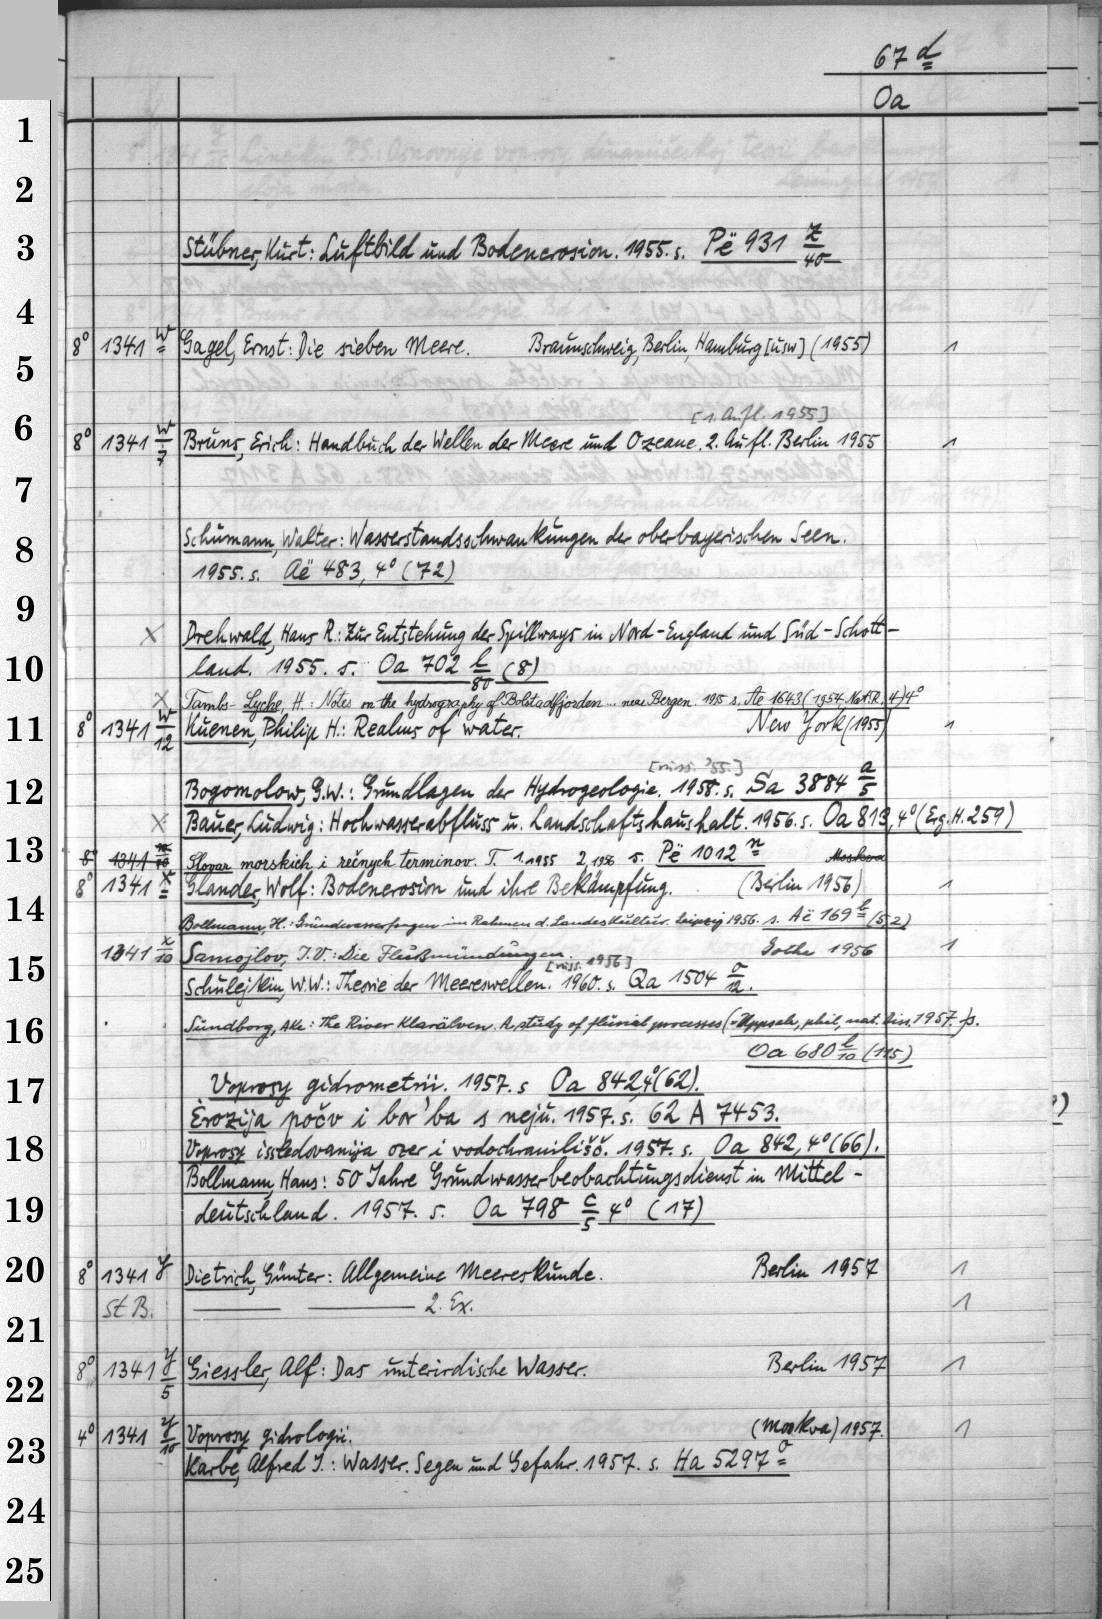 67 d
Oa
1
2
3 Stübner, Kurt: Luftbild und Bodenerosion. 1955. s. Pë 931 z/40
4
8° 1341 w Gagel, Ernst: Die sieben Meere. Braunschweig, Berlin, Hamburg [usw] (1955) 1
5
6 [1. Aufl. 1955]
8° 1341 w/7 Bruns, Erich: Handbuch der Wellen der Meere und Ozeane. 2. Aufl. Berlin 1955 1
7
8 Schumann, Walter: Wasserstandsschwankungen der oberbayerischen Seen.
1955. s. Aë 483, 4° (72)
9
X Drehwald, Hans R.: Zur Entstehung der Spillways in Nord-England und Süd-Schott-
10 land. 1955. s. Oa 702 l/80 (8)
X Tambs-Lyche, H.: Notes on the hydrography of Bolstadfjorden ... near Bergen. 1955 s. Ae 1643 (1954, Nat. R. 4) 4°
11 8° 1341 w/12 Kuenen, Philip H.: Realms of water. New York (1955) 1
[russ. '55.]
12 Bogomolow, G.W.: Grundlagen der Hydrogeologie. 1958. s. Sa 3884 a/5
X Bauer, Ludwig: Hochwasserabfluss u. Landschaftshaushalt. 1956. s. Oa 813, 4° (Erg. H. 259)
13 8° 1341 Slovar morskich i rečnych terminov. T. 1. 1955 2, 1956 s. Pë 1012 n Moskva
8° 1341 x Glander, Wolf: Bodenerosion und ihre Bekämpfung. (Berlin 1956) 1
14 Bollmann, H.: Grundwasserfragen im Rahmen d. Landeskultur. Leipzig 1956. s. Aë 169 l (5,2)
1341 x/10 Samojlov, I.V.: Die Flußmündungen. Gotha 1956 1
15 [russ. 1956]
Schulejkin, W.W.: Theorie der Meereswellen. 1960. s. Qa 1504 o/12.
16 Sundborg, Åke: The River Klarälven. A study of fluvial processes (= Uppsala, phil. nat. Diss. 1957. s.
Oa 680 l/10 (115)
17 Voprosy gidrometrii. 1957. s Oa 842, 4° (62).
Èrozija počv i bor'ba s neju. 1957. s. 62 A 7453.
18 Voprosy issledovanija ozer i vodochranilišč. 1957. s. Oa 842, 4° (66).
Bollmann, Hans: 50 Jahre Grundwasserbeobachtungsdienst in Mittel-
19 deutschland. 1957. s. Oa 798 c/5 4° (17)
20 8° 1341 y Dietrich, Günter: Allgemeine Meereskunde. Berlin 1957 1
St B. —— —— 2. Ex. 1
21
8° 1341 y/5 Giessler, Alf: Das unterirdische Wasser. Berlin 1957 1
22
4° 1341 y/10 Voprosy gidrologii. (Moskva) 1957. 1
23 Karbe, Alfred J.: Wasser. Segen und Gefahr. 1957. s. Ha 5297 o
24
25